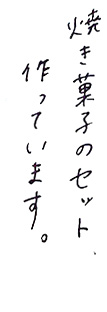 焼き菓子のセット
作っています。